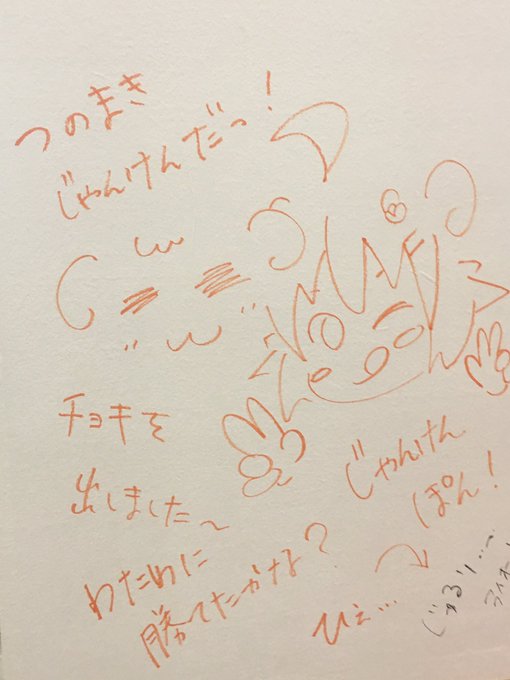 つのまき
じゃんけんだっ!
チョキを
出しました〜
わために
勝てたかな?
じゃんけん
ぽん!
ひぇ…
じゅるり…〜